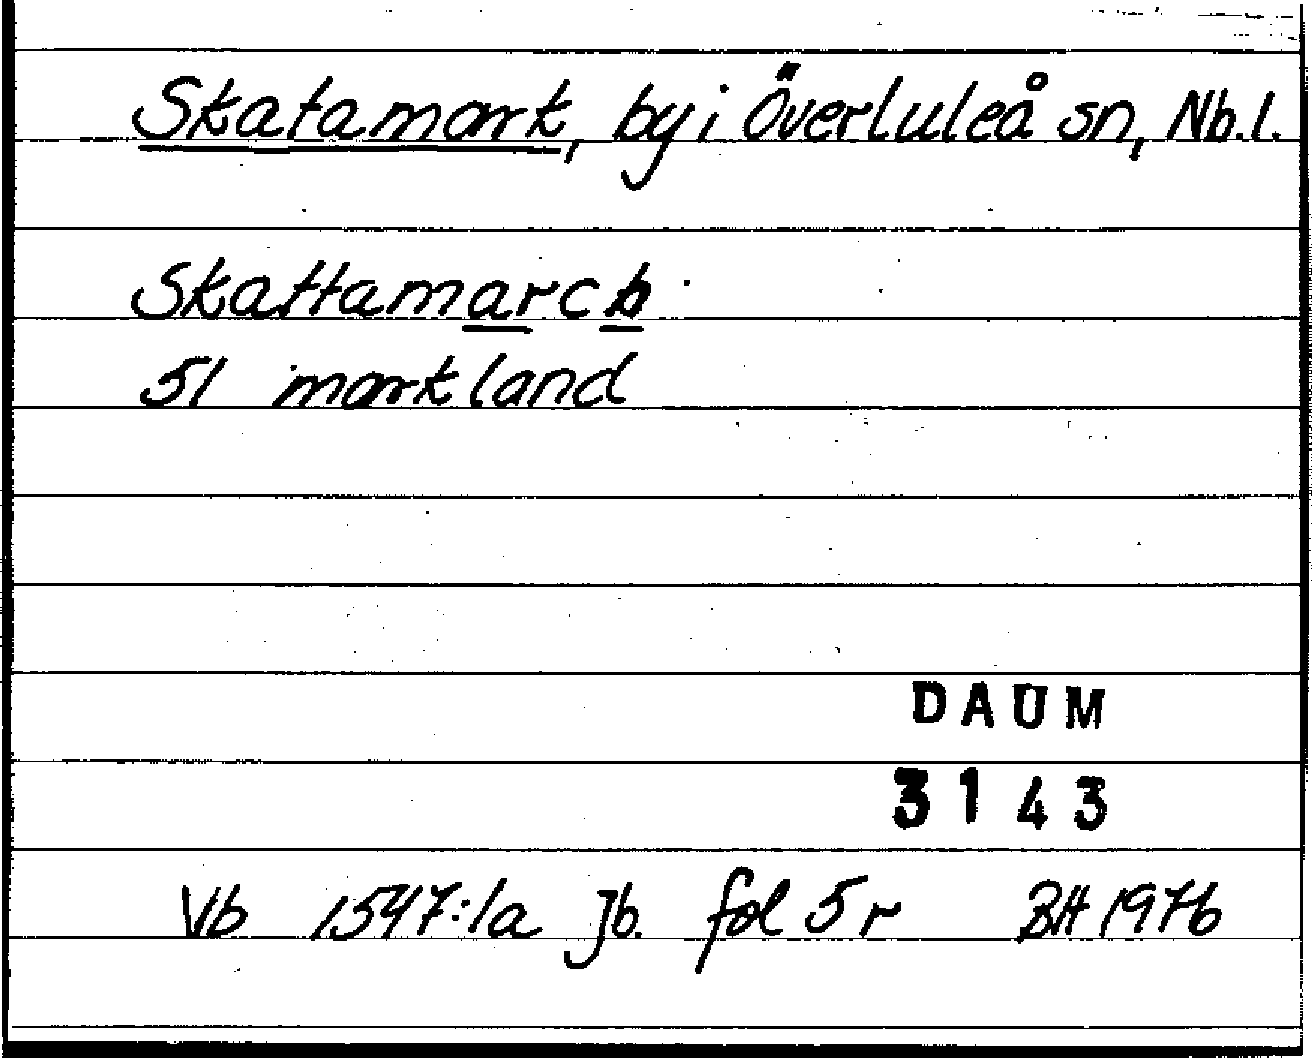 Skatamark, by i Överluleå sn, Nb.l.
Skattamarck
51 markland
DAUM
3143
Vb 1547:1a Jb. fol 5 r BH 1976